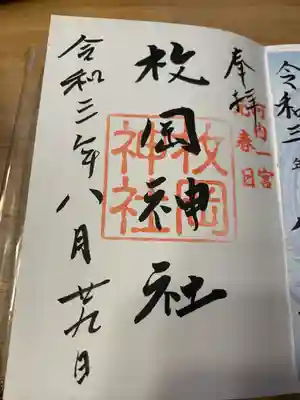 奉拝
河内一宮
元春日
枚岡神社
枚岡
神社
令和三年八月廿九日
令和三年八